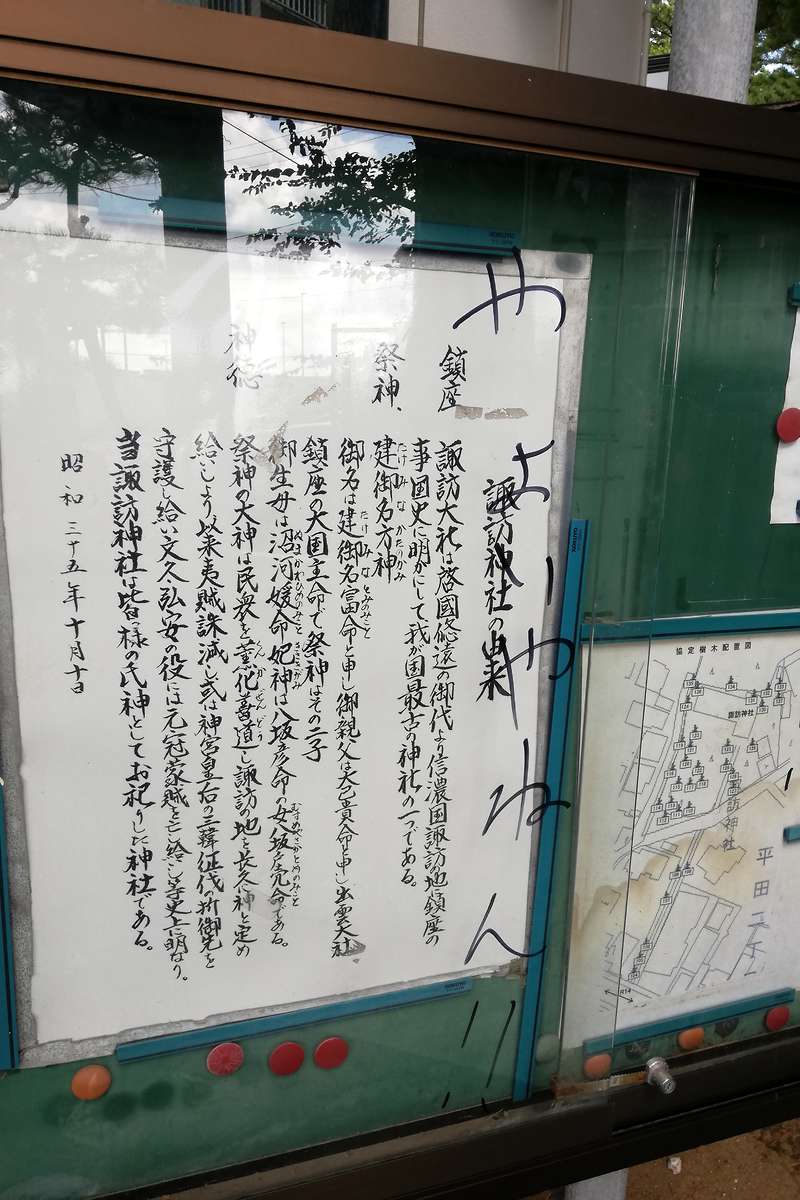 やよーやねん!!
諏訪神社の由来
鎮座
諏訪大社は啓國悠遠の御代より信濃国諏訪の地に鎮座の
事国史に明かにして我が国最古の神社の一つである。
祭神、
建御名方神
たけみなかたりかみ
御名は建御名富命と申し御親父は大己貴命と申し出雲大社
たけみなとみのみこと
鎮座の大国主命で祭神はその二子
御生母は沼河媛命妃神は八坂彦命の女八坂売命である。
神徳
祭神の大神は民衆を薫化善道し諏訪の地を長久に神と定め
給いしより以来夷賊誅滅し或は神宮皇后の三韓征伐の折御先を
守護し給い文久弘安の役には元冦蒙賊を亡給し等史上に明なり。
当諏訪神社は皆様の氏神としてお祀りした神社である。
昭和三十五年十月十日
協定樹木配置図
諏訪神社
諏訪神社
平田
KOKUYO
KOKUYO
KOKUYO